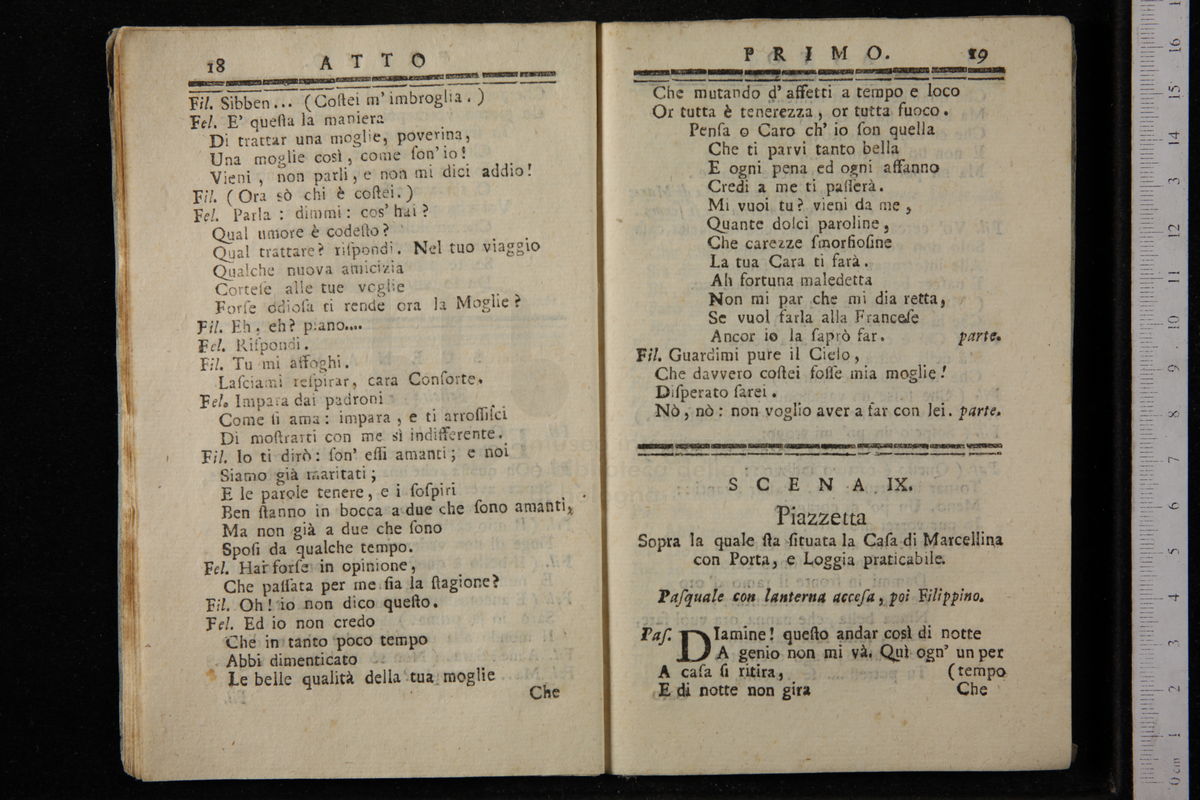 18 ATTO
Fil. Sibben... (Coſtei m' imbroglia.)
Fel. E' queſta la maniera
Di trattar una moglie, poverina,
Una moglie così, come ſon' io!
Vieni, non parli, e non mi dici addio!
Fil. (Ora sò chi è coſtei.)
Fel. Parla: dimmi: cos' hai?
Qual umore è codeſto?
Qual trattare? riſpondi. Nel tuo viaggio
Qualche nuova amicizia
Corteſe alle tue voglie
Forſe odioſa ti rende ora la Moglie?
Fil. Eh, eh? piano....
Fel. Riſpondi.
Fil. Tu mi affoghi.
Laſciami reſpirar, cara Conſorte.
Fel. Impara dai padroni
Come ſi ama: impara, e ti arroſſiſci
Di moſtrarti con me sì indifferente.
Fil. Io ti dirò: ſon' eſſi amanti; e noi
Siamo già maritati;
E le parole tenere, e i ſoſpiri
Ben ſtanno in bocca a due che ſono amanti,
Ma non già a due che ſono
Spoſi da qualche tempo.
Fel. Hai forſe in opinione,
Che paſſata per me ſia la ſtagione?
Fil. Oh! io non dico queſto.
Fel. Ed io non credo
Che in tanto poco tempo
Abbi dimenticato
Le belle qualità della tua moglie
Che
PRIMO. 19
Che mutando d' affetti a tempo e loco
Or tutta è tenerezza, or tutta fuoco.
Penſa o Caro ch' io ſon quella
Che ti parvi tanto bella
E ogni pena ed ogni affanno
Credi a me ti paſſerà.
Mi vuoi tu? vieni da me,
Quante dolci paroline,
Che carezze ſmorfioſine
La tua Cara ti farà.
Ah fortuna maledetta
Non mi par che mi dia retta,
Se vuol farla alla Franceſe
Ancor io la ſaprò far. parte.
Fil. Guardimi pure il Cielo,
Che davvero coſtei foſſe mia moglie!
Diſperato ſarei.
Nò, nò: non voglio aver a far con lei. parte.
SCENA IX.
Piazzetta
Sopra la quale ſta ſituata la Caſa di Marcellina
con Porta, e Loggia praticabile.
Paſquale con lanterna acceſa, poi Filippino.
Paſ. DIamine! queſto andar così di notte
A genio non mi và. Quì ogn' un per
A caſa ſi ritira, (tempo
E di notte non gira Che